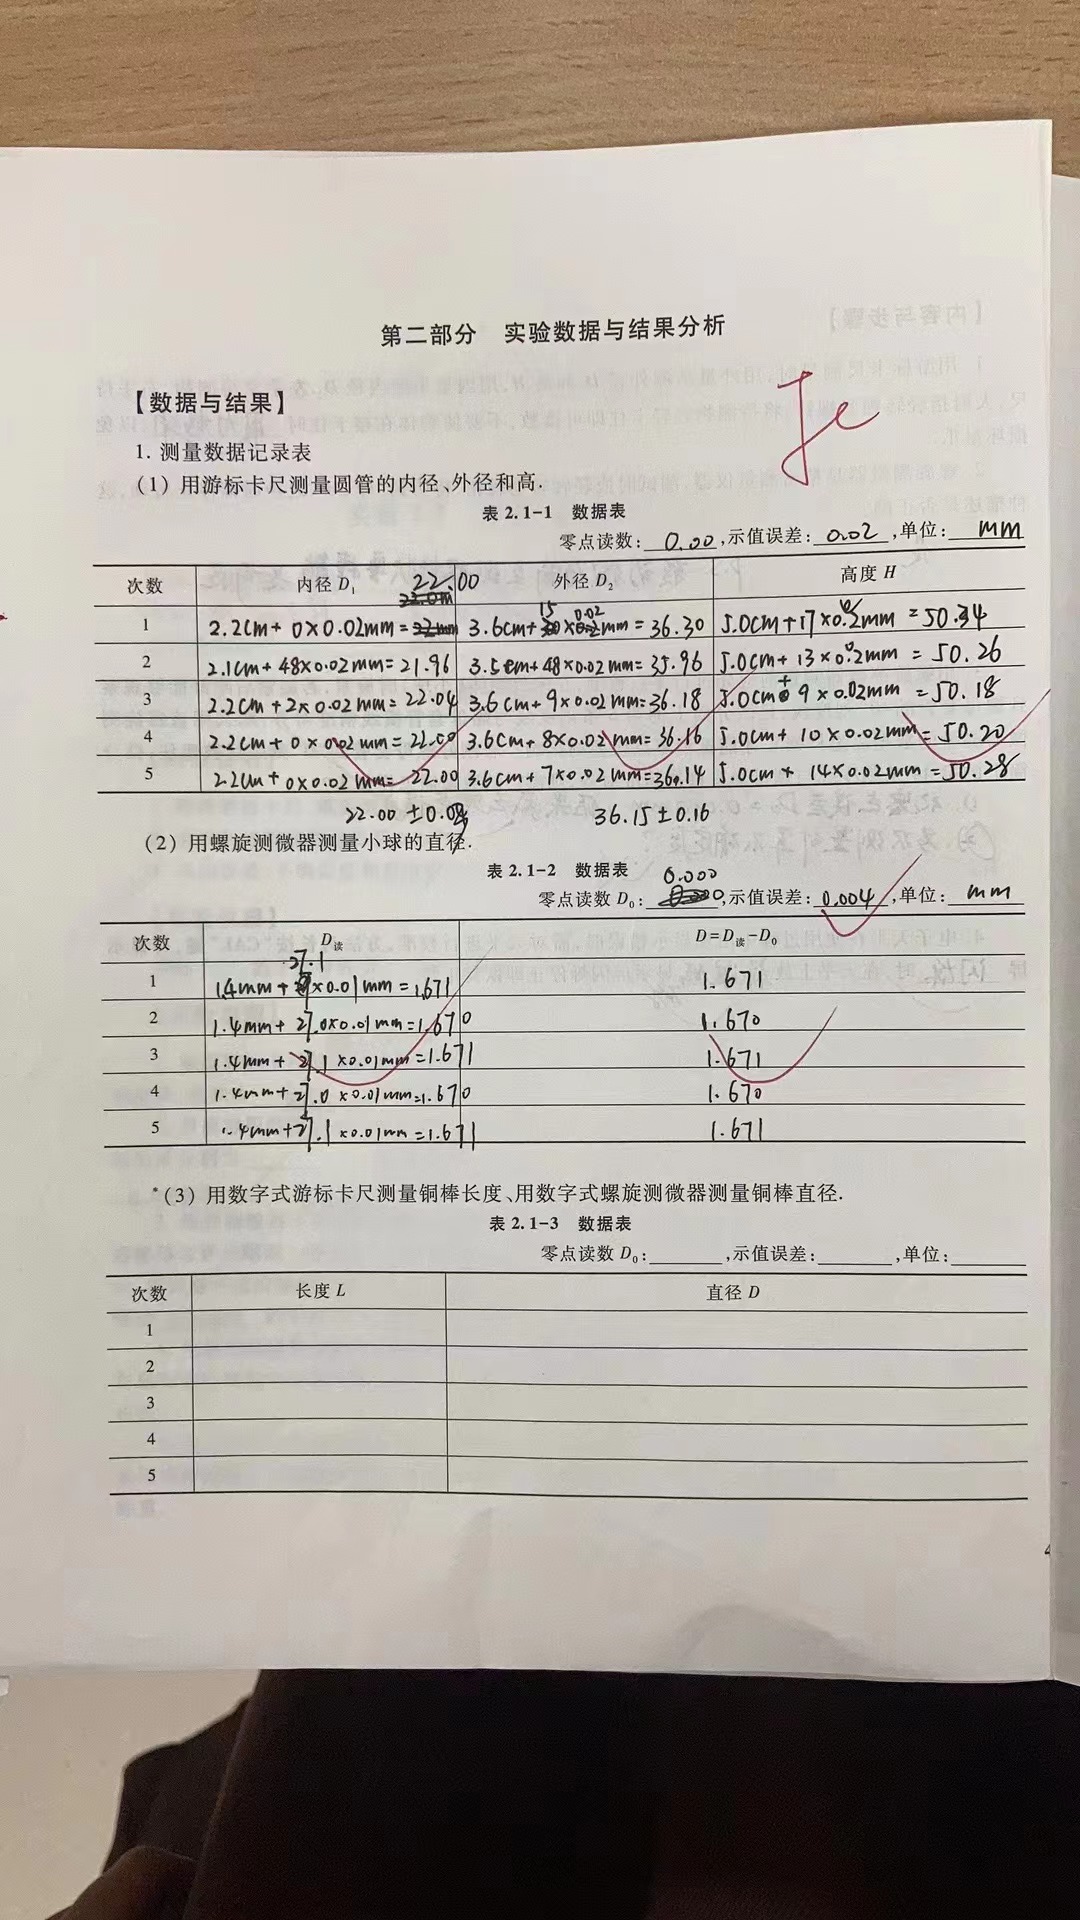 第二部分 实验数据与结果分析
【数据与结果】
1. 测量数据记录表
(1) 用游标卡尺测量圆管的内径、外径和高.
表 2.1-1 数据表
零点读数: 0.00 ,示值误差: 0.02 ,单位: mm
次数 内径 D₁ 外径 D₂ 高度 H
22.00
1 2.2cm+0×0.02mm= 3.6cm+15×0.02mm=36.30 5.0cm+17×0.02mm=50.34
2 2.1cm+48×0.02mm=21.96 3.5cm+48×0.02mm=35.96 5.0cm+13×0.02mm=50.26
3 2.2cm+2×0.02mm=22.04 3.6cm+9×0.02mm=36.18 5.0cm+9×0.02mm=50.18
4 2.2cm+0×0.02mm=22.00 3.6cm+8×0.02mm=36.16 5.0cm+10×0.02mm=50.20
5 2.2cm+0×0.02mm=22.00 3.6cm+7×0.02mm=36.14 5.0cm+14×0.02mm=50.28
22.00±0.0 36.15±0.16
(2) 用螺旋测微器测量小球的直径.
表 2.1-2 数据表
零点读数 D₀: 0.000 ,示值误差: 0.004 ,单位: mm
次数 D读 D=D读-D₀
1 1.4mm+27.1×0.01mm=1.671 1.671
2 1.4mm+27.0×0.01mm=1.670 1.670
3 1.4mm+27.1×0.01mm=1.671 1.671
4 1.4mm+27.0×0.01mm=1.670 1.670
5 1.4mm+27.1×0.01mm=1.671 1.671
*(3) 用数字式游标卡尺测量铜棒长度、用数字式螺旋测微器测量铜棒直径.
表 2.1-3 数据表
零点读数 D₀: ,示值误差: ,单位:
次数 长度 L 直径 D
1
2
3
4
5